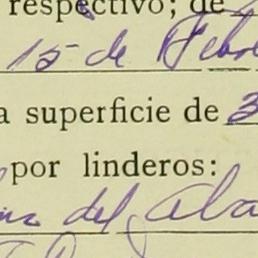 respectivo; de
15 de Febr
a superficie de 3
por linderos:
del